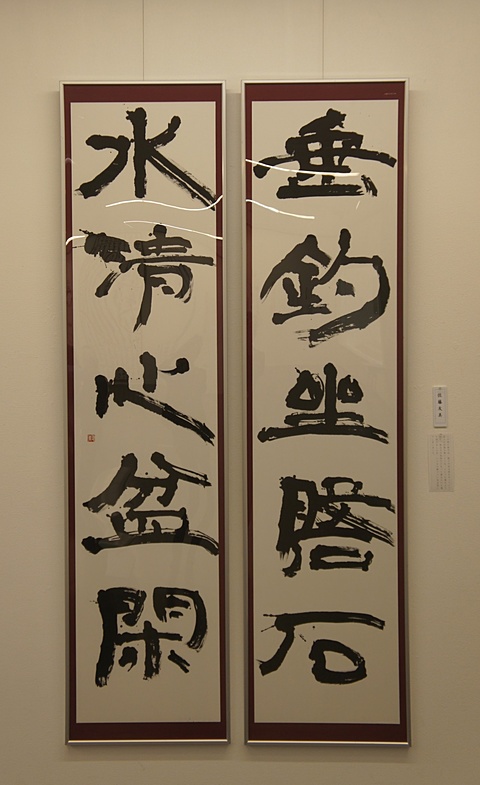 垂釣坐磐石
水清心益閑